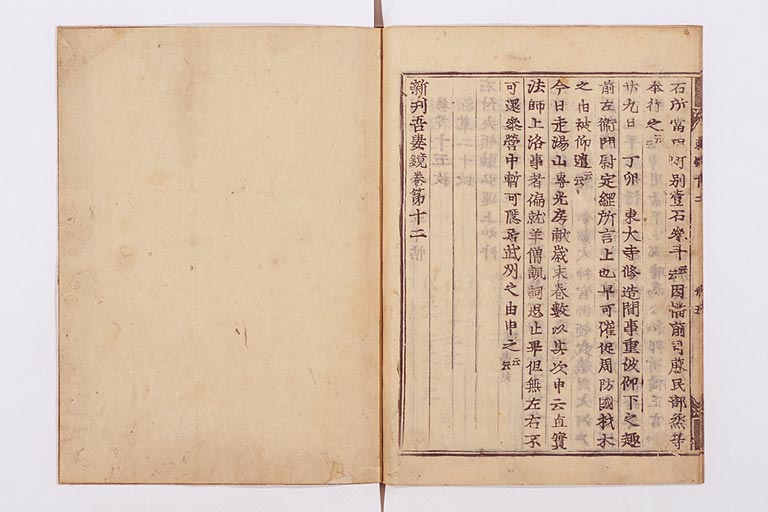 石所當四町別壹石參斗云云因幡前司藤民部烝等
奉行之云云
廿九日丁卯東大寺修造間事重被仰下之趣
前左衛門尉定經所言上也早可催促周防國材木
之由被仰遣云云
今日走湯山專光房献歳末卷數以其次申云直實
法師上洛事者偏就羊僧諷詞思止畢但無左右不
可還參營中暫可隱居武州之由申之云云
新刊吾妻鏡卷第十二